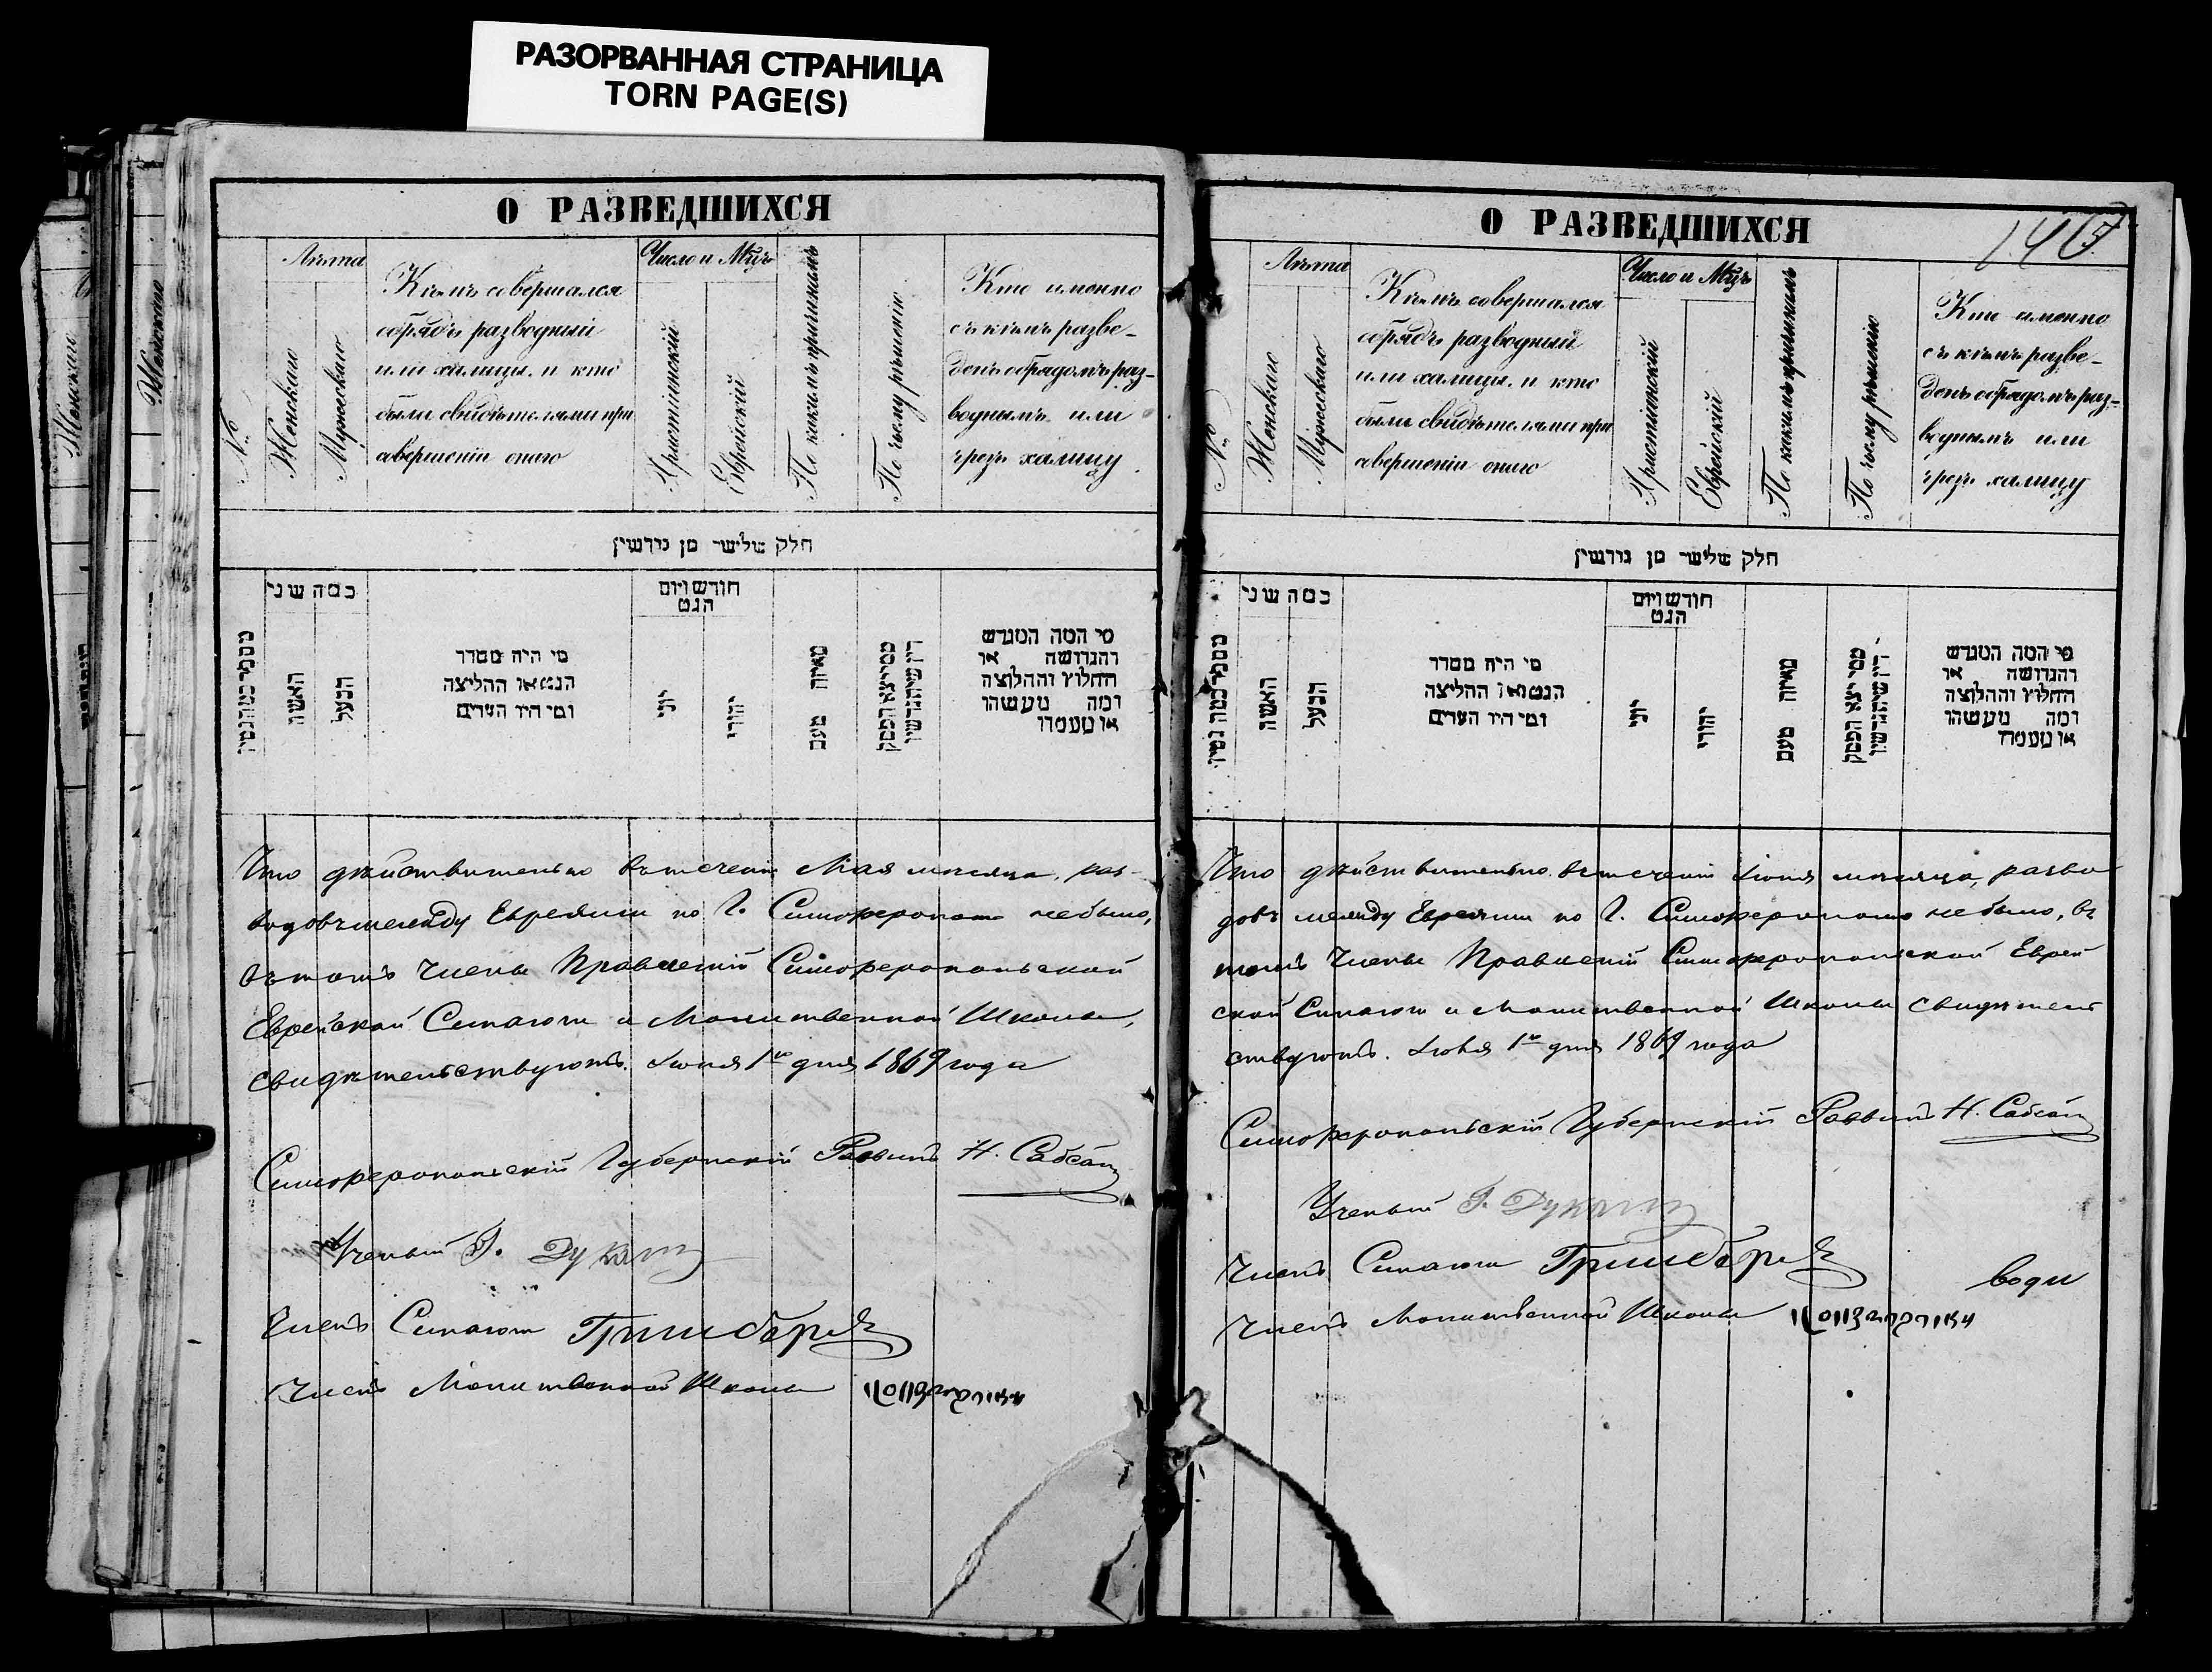 РАЗОРВАННАЯ СТРАНИЦА
TORN PAGE(S)
О РАЗВЕДШИХСЯ
№
Лѣта
Женскаго
Мужескаго
Кѣмъ совершался
обрядъ разводный
или халицы, и кто
были свидѣтелями при
совершеніи онаго
Число и Мцъ
Христіянскій
Еврейскій
По какимъ причинамъ
По чьему рѣшенію
Кто именно
съ кѣмъ разве-
денъ обрядомъ раз-
воднымъ или
чрезъ халицу
חלק שלישי מן גירושין
כמה שני
האשה
הבעל
מי היה מסדר
הגט או החליצה
ומי היו העדים
חודש ויום
הגט
יוני
יהודי
מאיזה טעם
מי המה המגרש
והגרושה או
החלוץ והחלוצה
ומה נעשה
Что дѣйствительно втеченіи Мая мѣсяца, раз-
водовъ между Евреями по Г. Симферополю небыло,
въ томъ Члены Правленій Симферопольской
Еврейской Синагоги и Молитвенной Школы,
свидѣтельствуютъ. Іюня 1го дня 1869 года
Симферопольскій Губернскій Раввинъ Н. Сабсай
Ученый Г.
Членъ Синагоги
Членъ Молитвенной Школы
О РАЗВЕДШИХСЯ
№
Лѣта
Женскаго
Мужескаго
Кѣмъ совершался
обрядъ разводный
или халицы, и кто
были свидѣтелями при
совершеніи онаго
Число и Мцъ
Христіянскій
Еврейскій
По какимъ причинамъ
По чьему рѣшенію
Кто именно
съ кѣмъ разве-
денъ обрядомъ раз-
воднымъ или
чрезъ халицу
חלק שלישי מן גירושין
כמה שני
האשה
הבעל
מי היה מסדר
הגט או החליצה
ומי היו העדים
חודש ויום
הגט
יוני
יהודי
מאיזה טעם
מי המה המגרש
והגרושה או
החלוץ והחלוצה
ומה נעשה
Что дѣйствительно втеченіи Іюня мѣсяца, разво
довъ между Евреями по Г. Симферополю небыло, въ
томъ Члены Правленій Симферопольской Еврей
ской Синагоги и Молитвенной Школы свидѣтель
ствуютъ. Іюля 1го дня 1869 года
Симферопольскій Губернскій Раввинъ Н. Сабсай
Ученый Г.
Членъ Синагоги
Членъ Молитвенной Школы